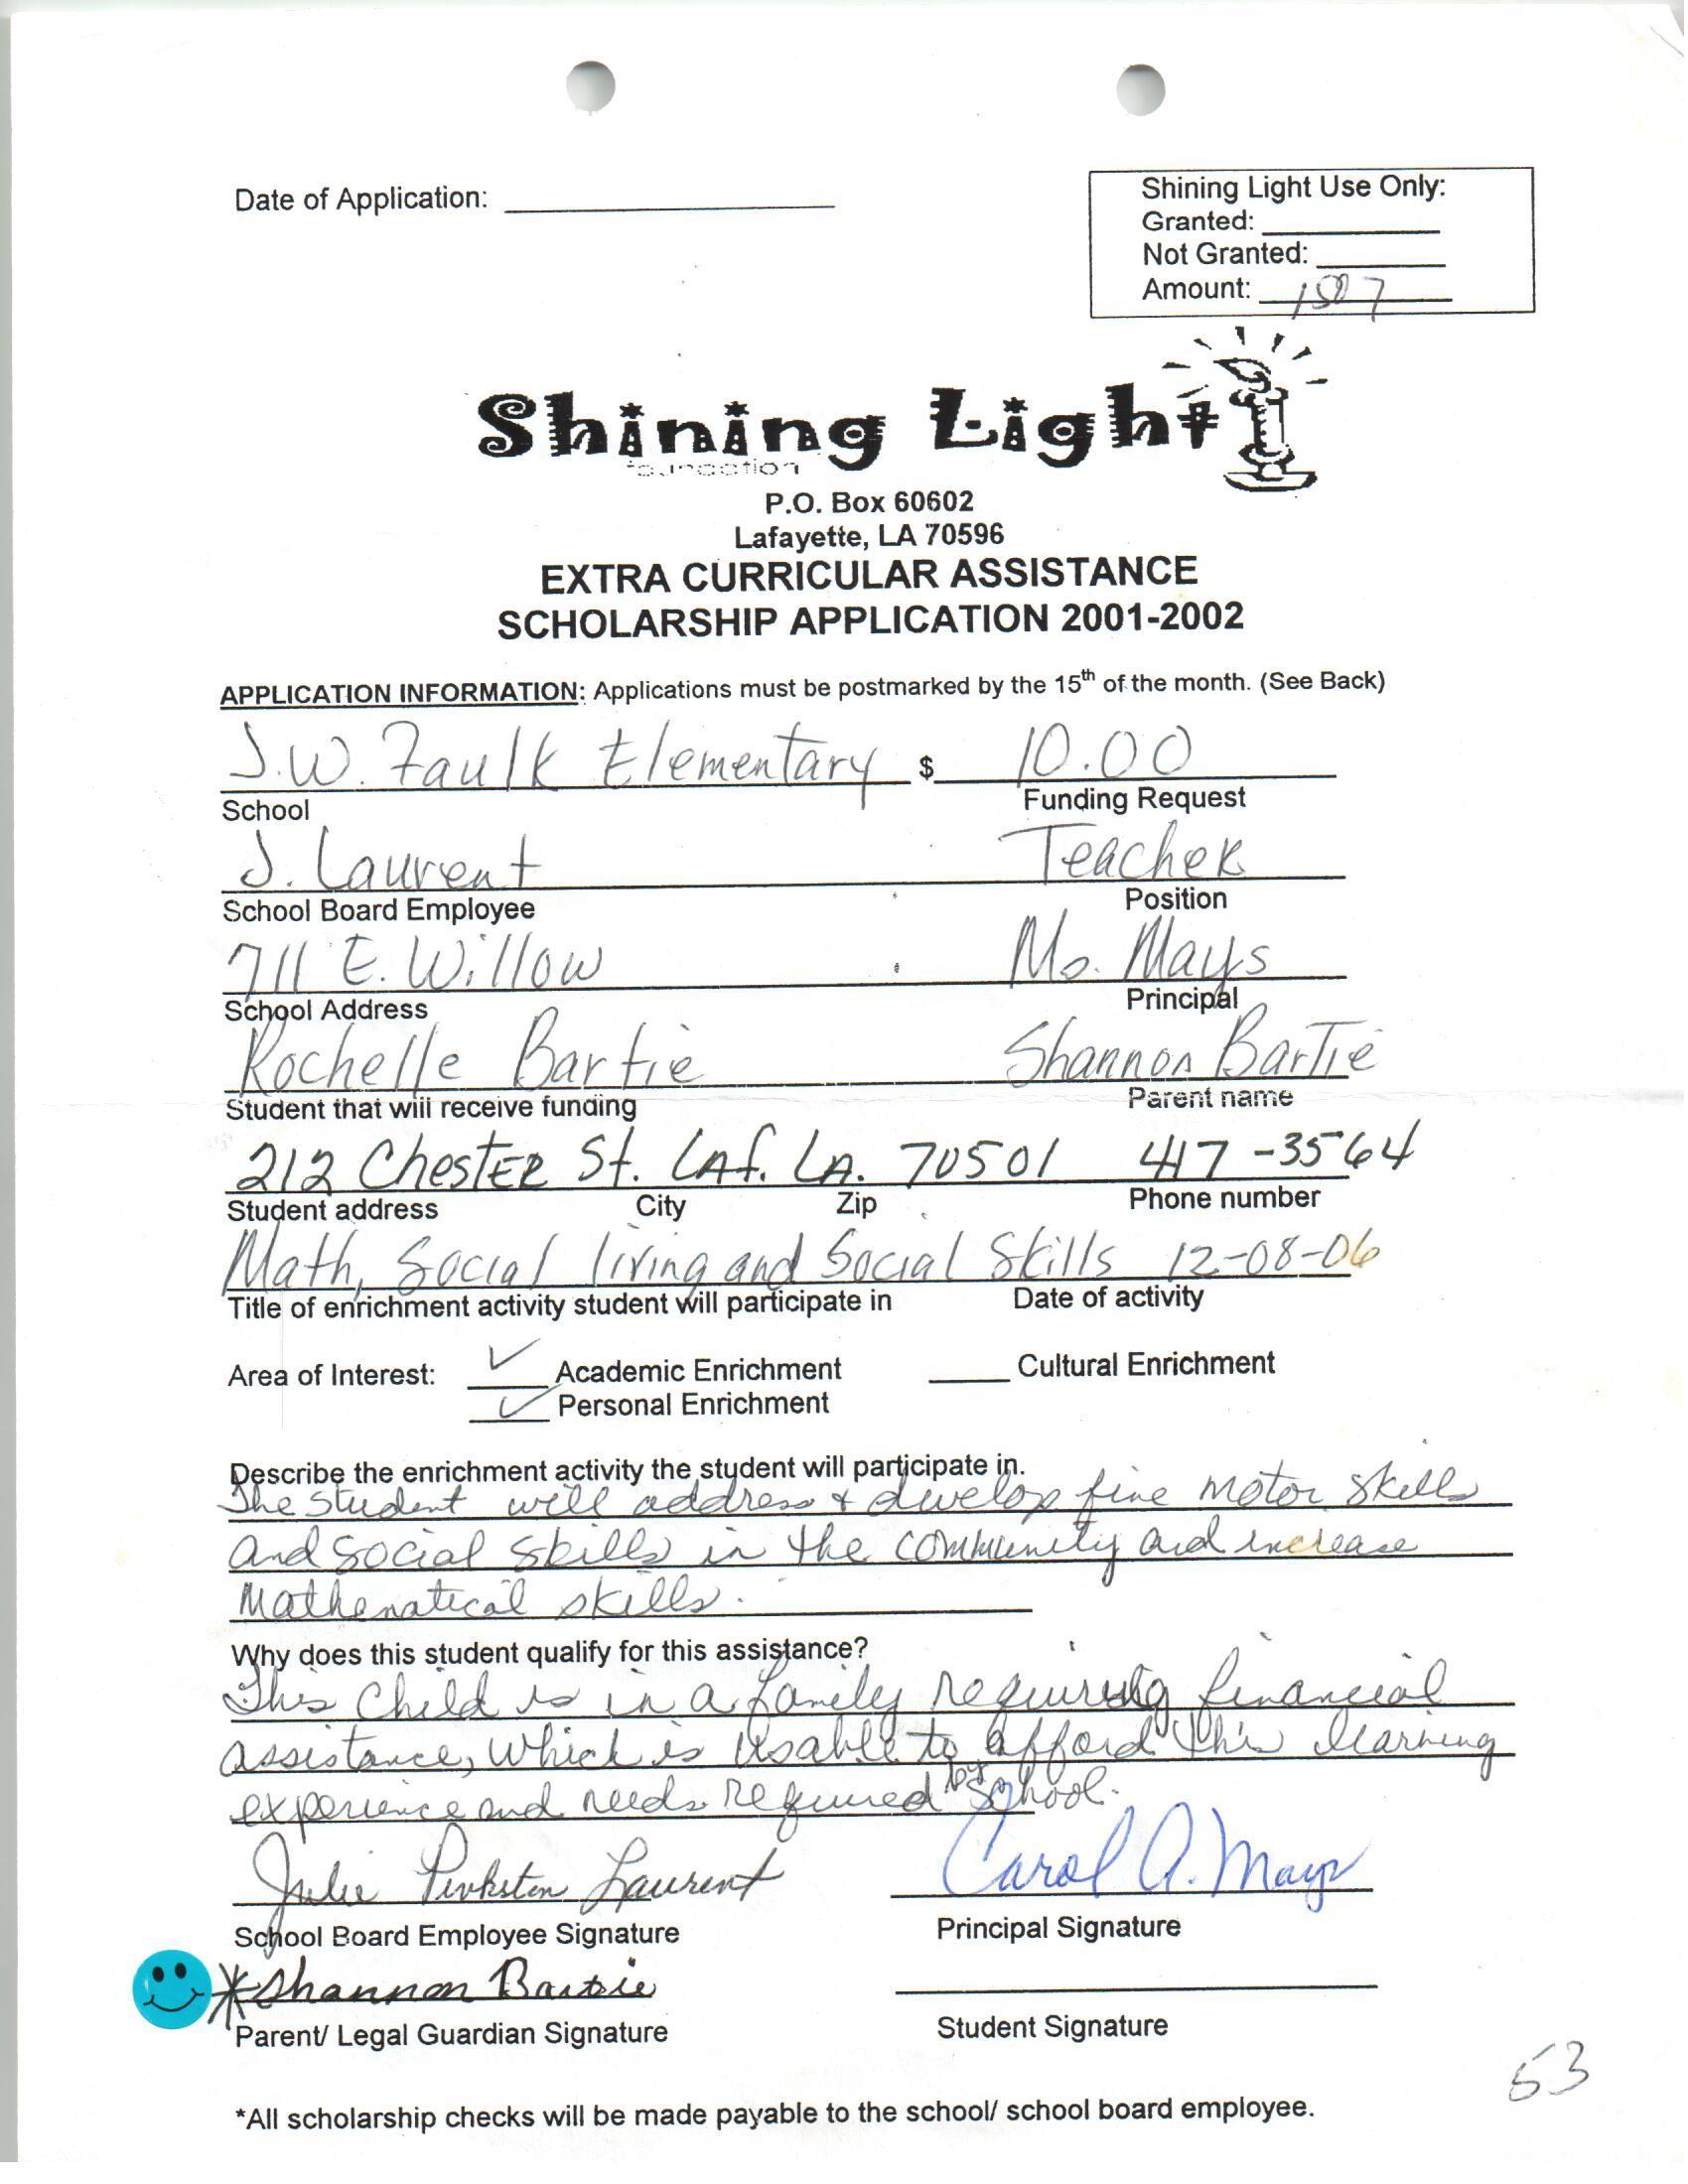 Date of Application:
Shining Light Use Only:
Granted:
Not Granted:
Amount: 1507
Shining Light
foundation
P.O. Box 60602
Lafayette, LA 70596
EXTRA CURRICULAR ASSISTANCE
SCHOLARSHIP APPLICATION 2001-2002
APPLICATION INFORMATION: Applications must be postmarked by the 15th of the month. (See Back)
J.W. Faulk Elementary $ 10.00
School Funding Request
J. Laurent Teacher
School Board Employee Position
711 E. Willow Ms. Mays
School Address Principal
Rochelle Bartie Shannon Bartie
Student that will receive funding Parent name
212 Chester St. LAf. LA. 70501 417-3564
Student address City Zip Phone number
Math, Social living and Social Skills 12-08-06
Title of enrichment activity student will participate in Date of activity
Area of Interest: ✓ Academic Enrichment Cultural Enrichment
✓ Personal Enrichment
Describe the enrichment activity the student will participate in.
The student will address & develop fine motor skills
and social skills in the community and increase
Mathematical skills.
Why does this student qualify for this assistance?
This child is in a family requiring financial
assistance, which is usable to afford this learning
experience and needs required by school.
Julie Pinkston Laurent Carol A. Mays
School Board Employee Signature Principal Signature
*Shannon Bartie
Parent/ Legal Guardian Signature Student Signature
53
*All scholarship checks will be made payable to the school/ school board employee.